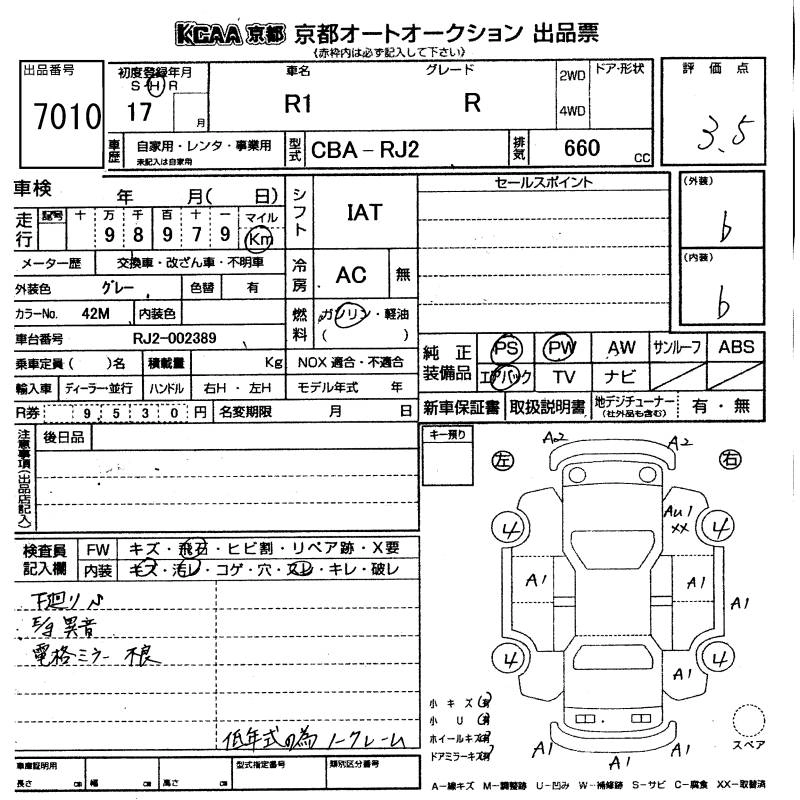 KCAA 京都 京都オートオークション 出品票
(赤枠内は必ず記入して下さい)
出品番号
7010
初度登録年月
S H R
17 月
車名
R1
グレード
R
2WD
4WD
ドア・形状
評価点
3.5
車歴
自家用・レンタ・事業用
未記入は自家用
型式
CBA-RJ2
排気
660 CC
車検 年 月( 日)
走行
記号 十 万 千 百 十 一 マイル
9 8 9 7 9 Km
メーター歴 交換車・改ざん車・不明車
外装色 グレー 色替 有
カラーNo. 42M 内装色
車台番号 RJ2-002389
乗車定員( )名 積載量 Kg NOX 適合・不適合
輸入車 ディーラー・並行 ハンドル 右H・左H モデル年式 年
R券 9,530円 名変期限 月 日
シフト
IAT
冷房
AC 無
燃料
ガソリン・軽油
( )
セールスポイント
(外装)
b
(内装)
b
純正装備品
PS PW AW サンルーフ ABS
エアバック TV ナビ
新車保証書 取扱説明書 地デジチューナー
(社外品も含む)
有・無
注意事項(出品店記入)
後日品
キー預り
左
右
A2
A2
4
AU1
XX
4
A1
A1
A1
4
A1
4
A1
A1
A1
検査員記入欄
FW キズ・飛石・ヒビ割・リペア跡・X要
内装 キズ・汚レ・コゲ・穴・スレ・キレ・破レ
下廻り
E/g 異音
電格ミラー 不良
低年式の為 ノークレーム
小キズ(有)
小 U (有)
ホイールキズ(有)
ドアミラーキズ(有)
スペア
車庫証明用
長さ cm 幅 cm 高さ cm
型式指定番号
類別区分番号
A-線キズ M-調整跡 U-凹み W-補修跡 S-サビ C-腐食 XX-取替済